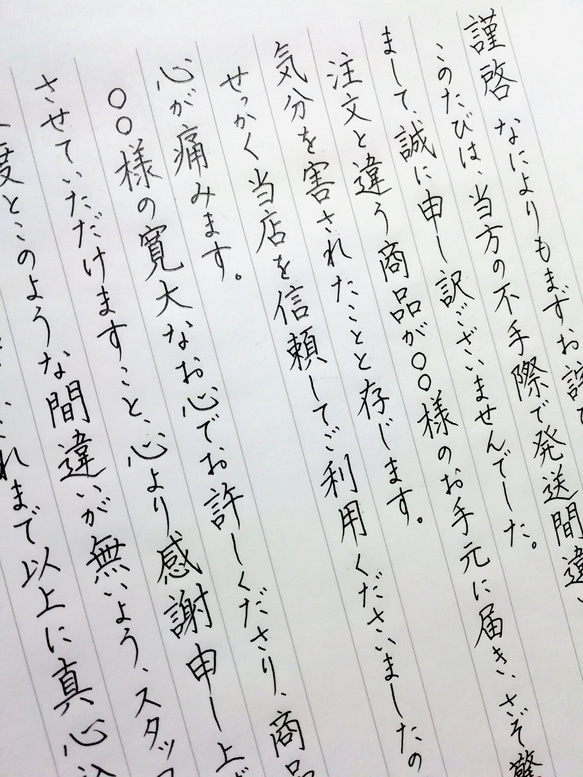 謹啓 なによりもまずお詫
このたびは、当方の不手際で発送間違い
まして、誠に申し訳ございませんでした。
注文と違う商品が〇〇様のお手元に届き、さぞ驚
気分を害されたことと存じます。
せっかく当店を信頼してご利用くださいましたの
心が痛みます。
〇〇様の寛大なお心でお許しくださり、商品
させていただけますこと、心より感謝申し上げ
度とこのような間違いが無いよう、スタッフ
これまで以上に真心込